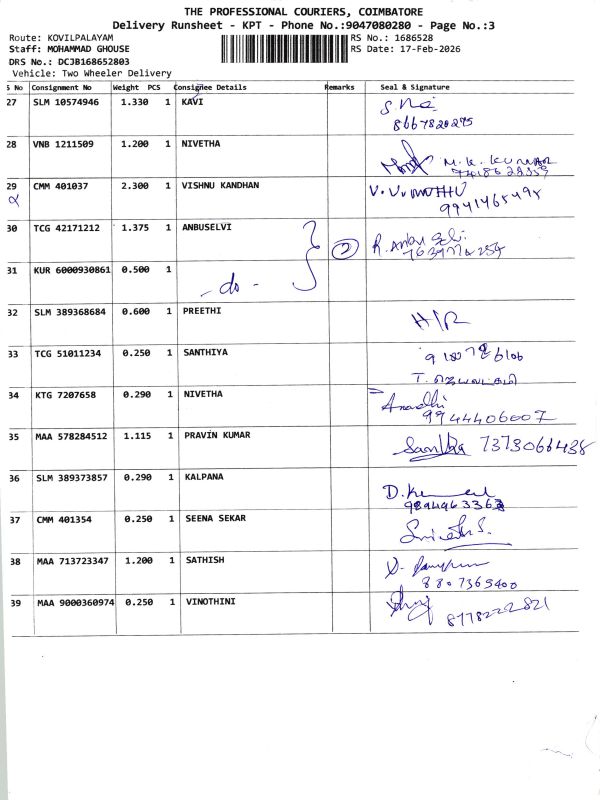 THE PROFESSIONAL COURIERS, COIMBATORE
Delivery Runsheet - KPT - Phone No.:9047080280 - Page No.:3
Route: KOVILPALAYAM RS No.: 1686528
Staff: MOHAMMAD GHOUSE RS Date: 17-Feb-2026
DRS No.: DCJB168652803
Vehicle: Two Wheeler Delivery
S No Consignment No Weight PCS Consignee Details Remarks Seal & Signature
27 SLM 10574946 1.330 1 KAVI
8667820295
28 VNB 1211509 1.200 1 NIVETHA
M.K. KUMAR
29 CMM 401037 2.300 1 VISHNU KANDHAN
9941465495
30 TCG 42171212 1.375 1 ANBUSELVI 2 R. Anbu Selvi
31 KUR 6000930861 0.500 1 - do -
32 SLM 389368684 0.600 1 PREETHI H/R
33 TCG 51011234 0.250 1 SANTHIYA
34 KTG 7207658 0.290 1 NIVETHA
9944406007
35 MAA 578284512 1.115 1 PRAVIN KUMAR 7373066438
36 SLM 389373857 0.290 1 KALPANA
37 CMM 401354 0.250 1 SEENA SEKAR
38 MAA 713723347 1.200 1 SATHISH
8807365400
39 MAA 9000360974 0.250 1 VINOTHINI
8778222821